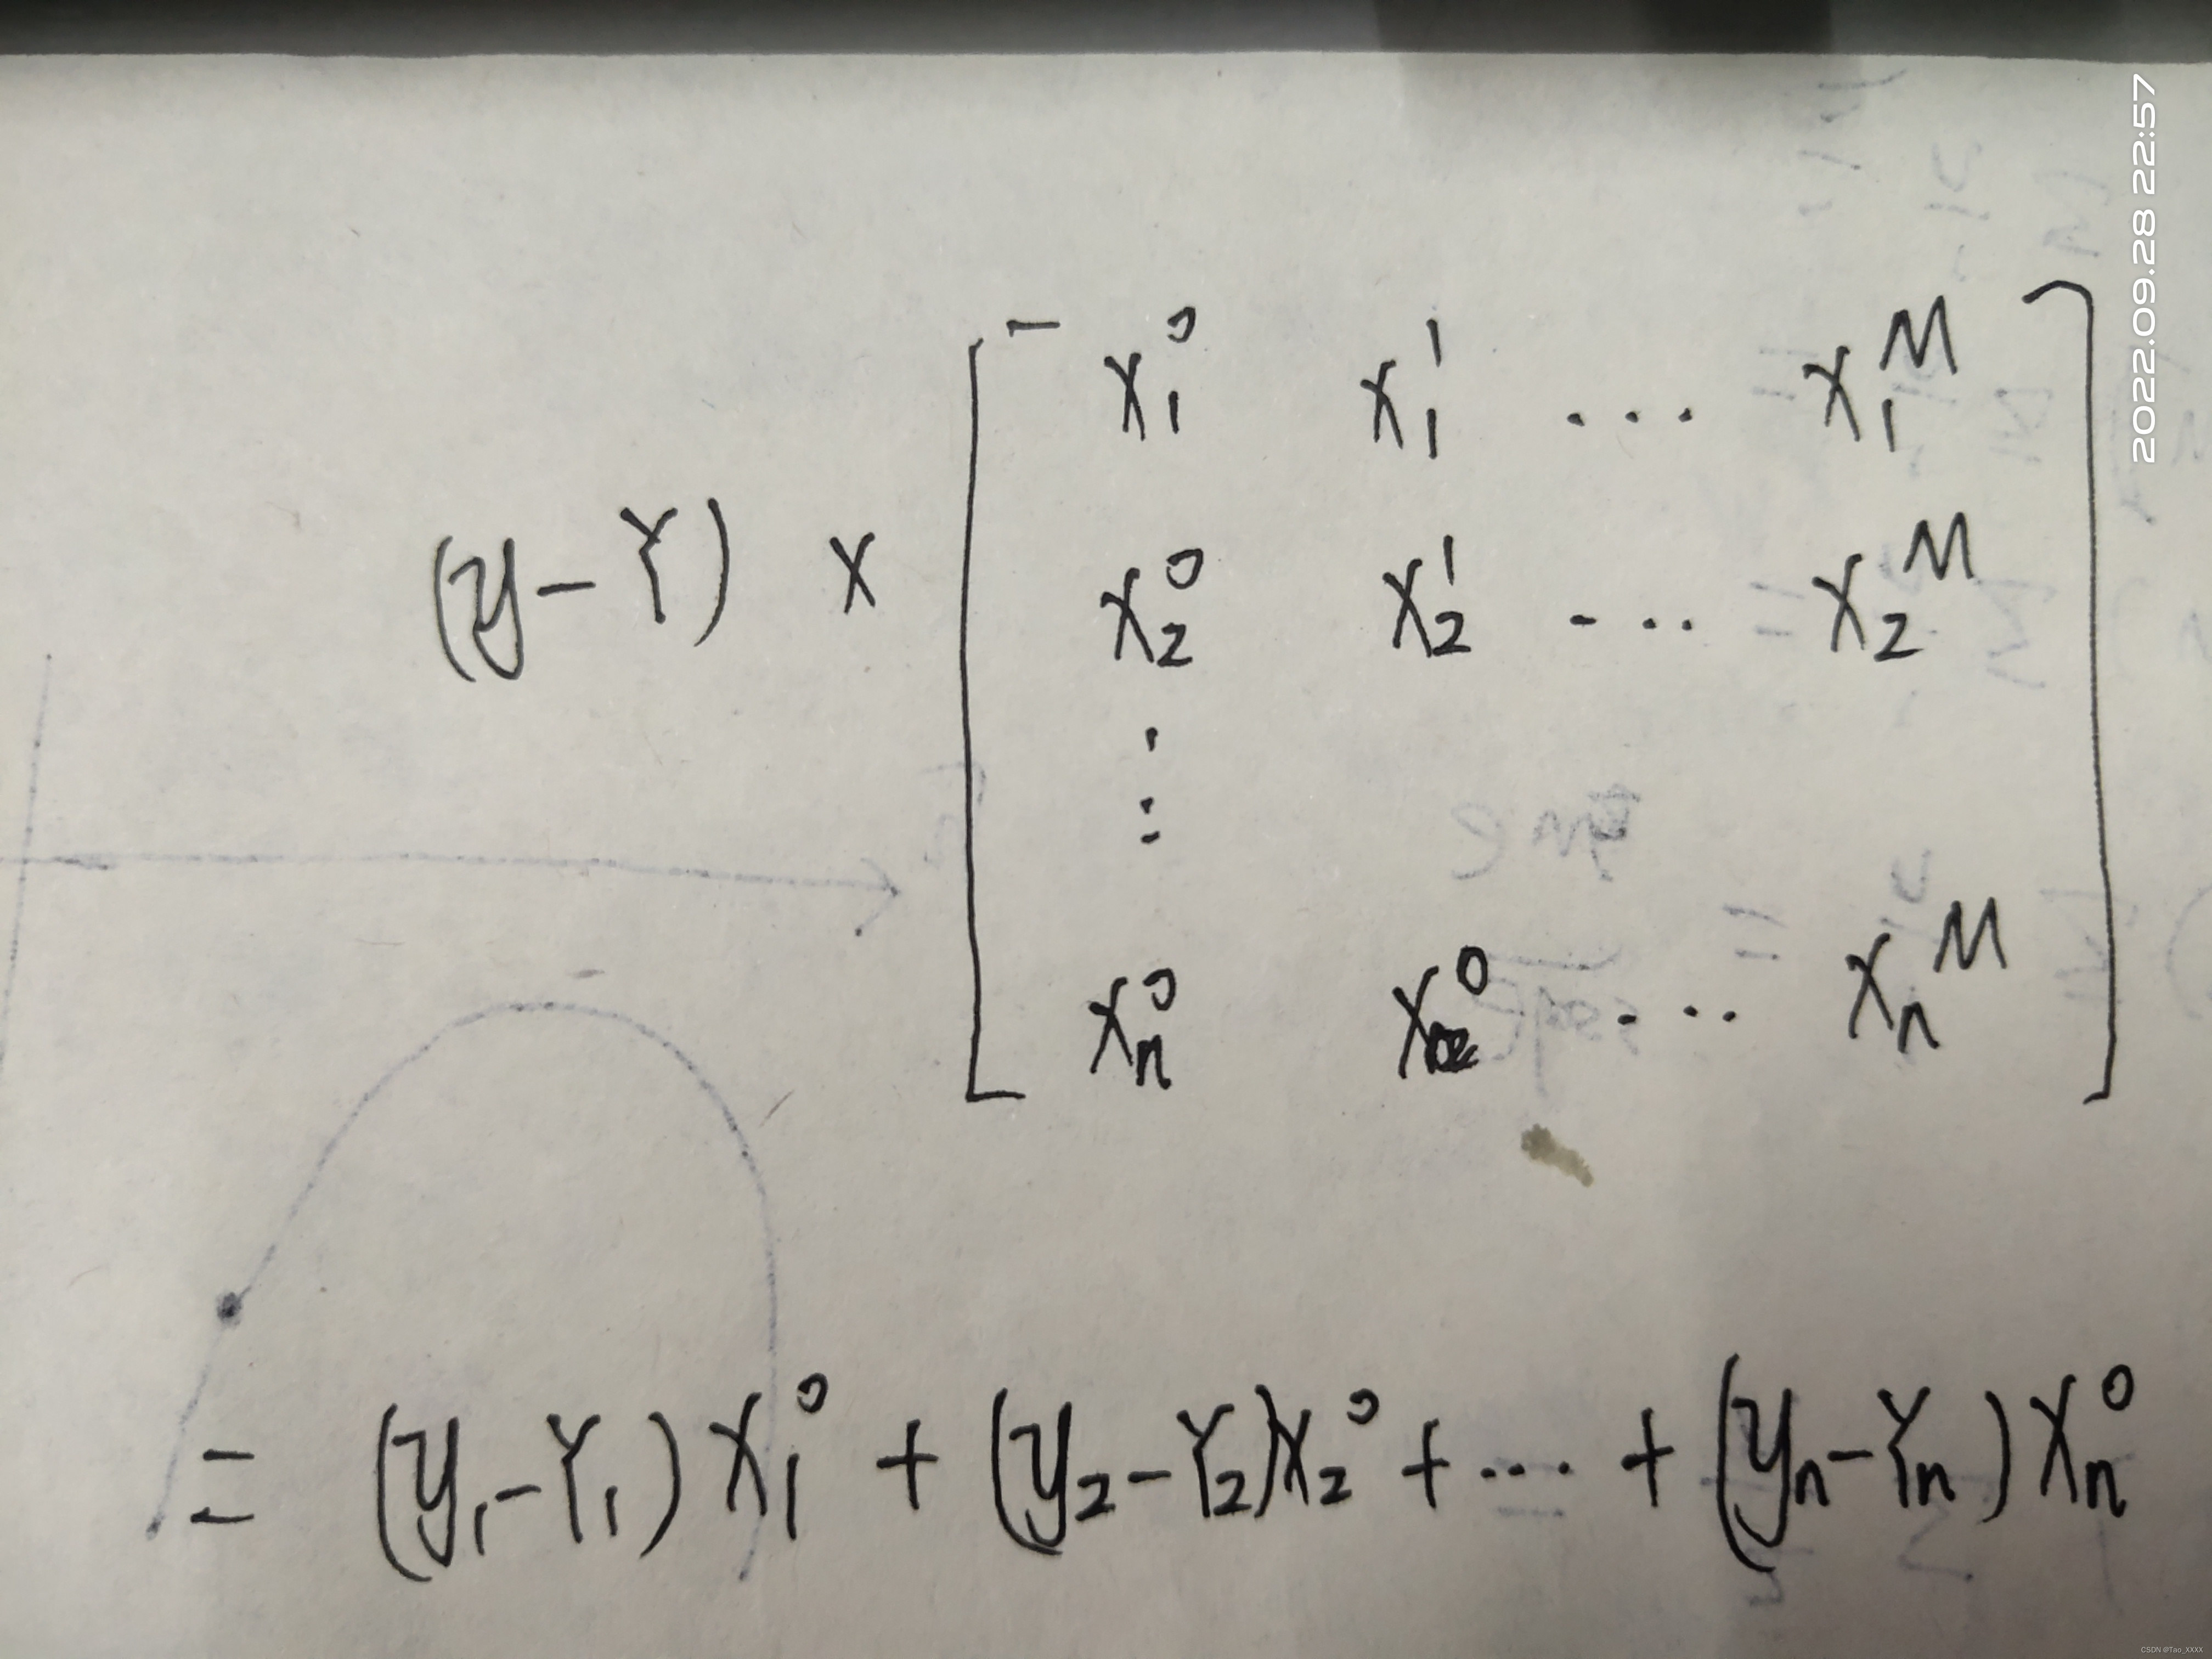 2022.09.28 22:57
x₁⁰ x₁¹ ... x₁ᴹ
(y-Y) ×
x₂⁰ x₂¹ ... x₂ᴹ
⋮
xₙ⁰ x⁰ ... xₙᴹ
= (y₁-Y₁)x₁⁰ + (y₂-Y₂)x₂⁰ + ... + (yₙ-Yₙ)xₙ⁰
CSDN @Tao_XXXX